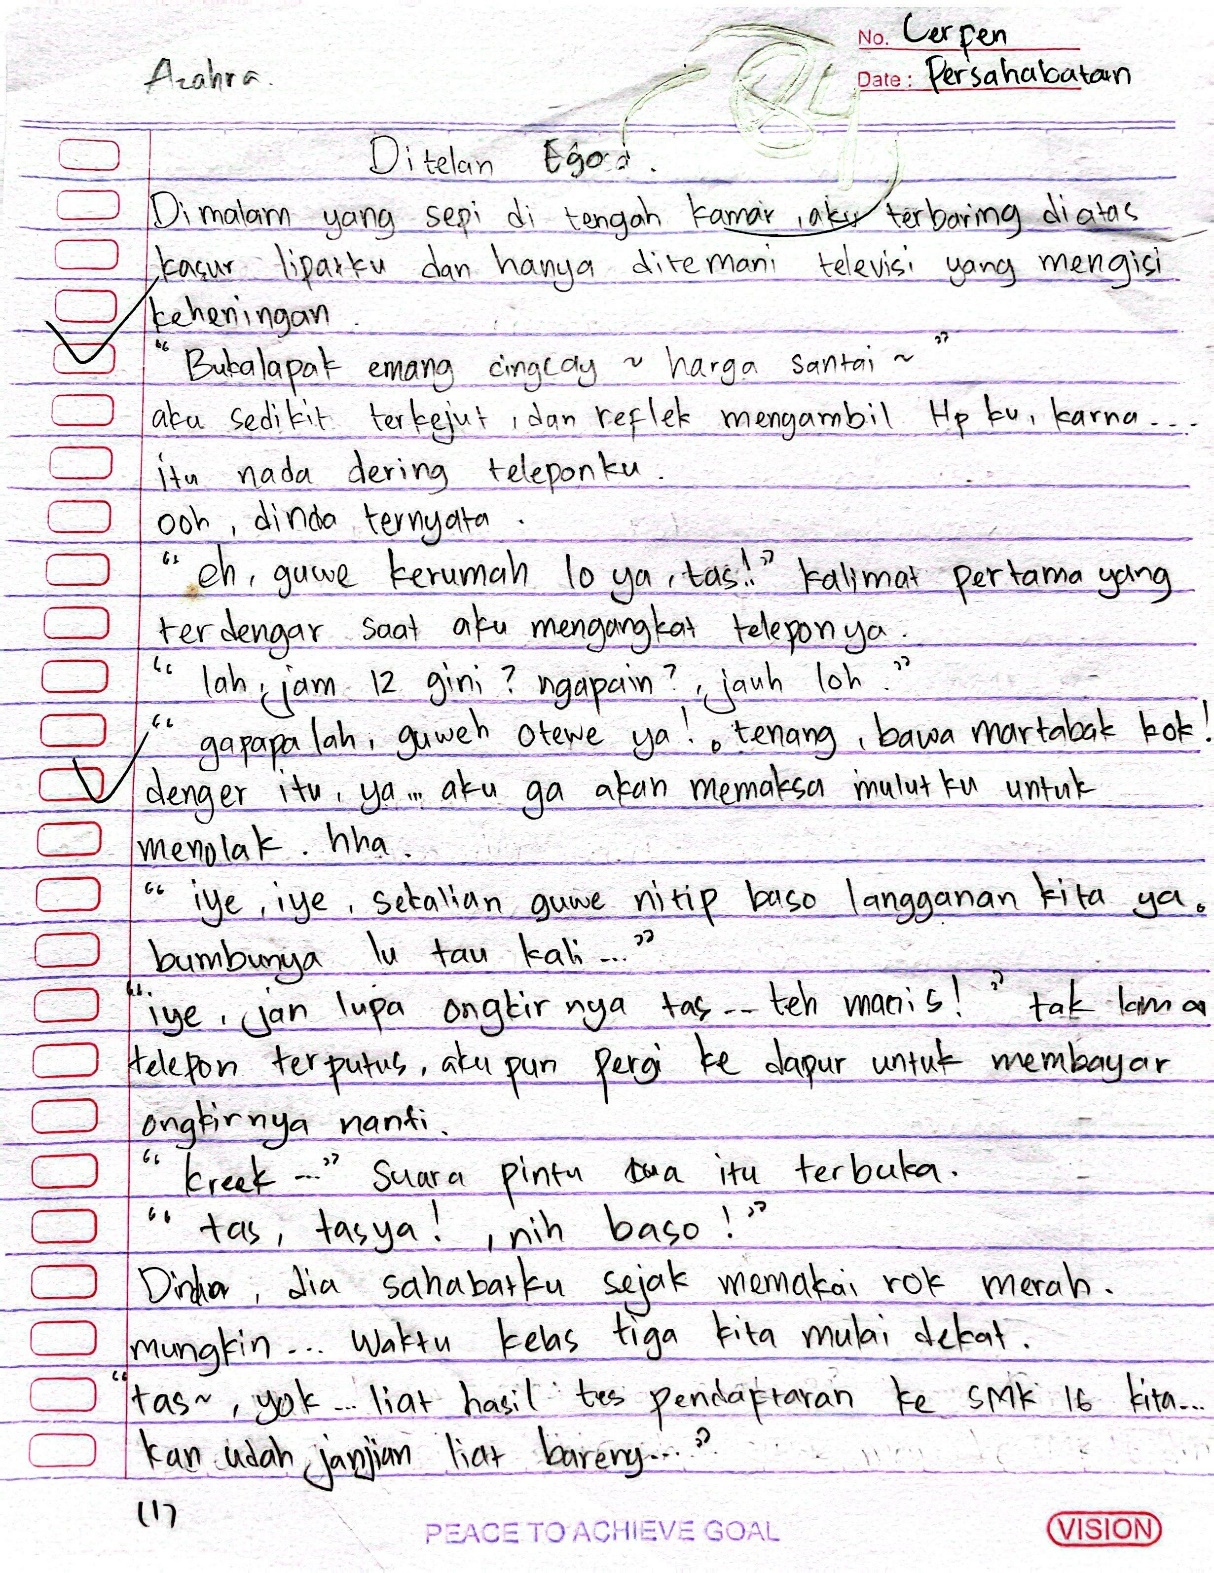 No. Cerpen
Azahra.
Date: Persahabatan
84
Ditelan Ego.
Dimalam yang sepi di tengah kamar, aku terbaring diatas
kasur lipatku dan hanya ditemani televisi yang mengisi
keheningan.
"Bukalapak emang cingcay ~ harga santai ~"
aku sedikit terkejut, dan reflek mengambil Hp ku, karna...
itu nada dering teleponku.
ooh, dinda ternyata.
"eh, guwe kerumah lo ya, tas!." kalimat pertama yang
terdengar saat aku mengangkat teleponya.
"lah, jam 12 gini? ngapain?, jauh loh."
"gapapa lah, guweh otewe ya!. tenang, bawa martabak kok!
denger itu, ya... aku ga akan memaksa mulutku untuk
menolak. hha.
"iye, iye, sekalian guwe nitip baso langganan kita ya.
bumbunya lu tau kali..."
"iye, jan lupa ongkir nya tas -- teh manis!" tak lama
telepon terputus, aku pun pergi ke dapur untuk membayar
ongkirnya nanti.
"kreek ..." suara pintu tua itu terbuka.
"tas, tasya!, nih baso!"
Dinda, dia sahabatku sejak memakai rok merah.
mungkin... waktu kelas tiga kita mulai dekat.
"tas~, yok... liat hasil tes pendaftaran ke SMK 16 kita...
kan udah janjian liat bareng..."
(1)
PEACE TO ACHIEVE GOAL
VISION